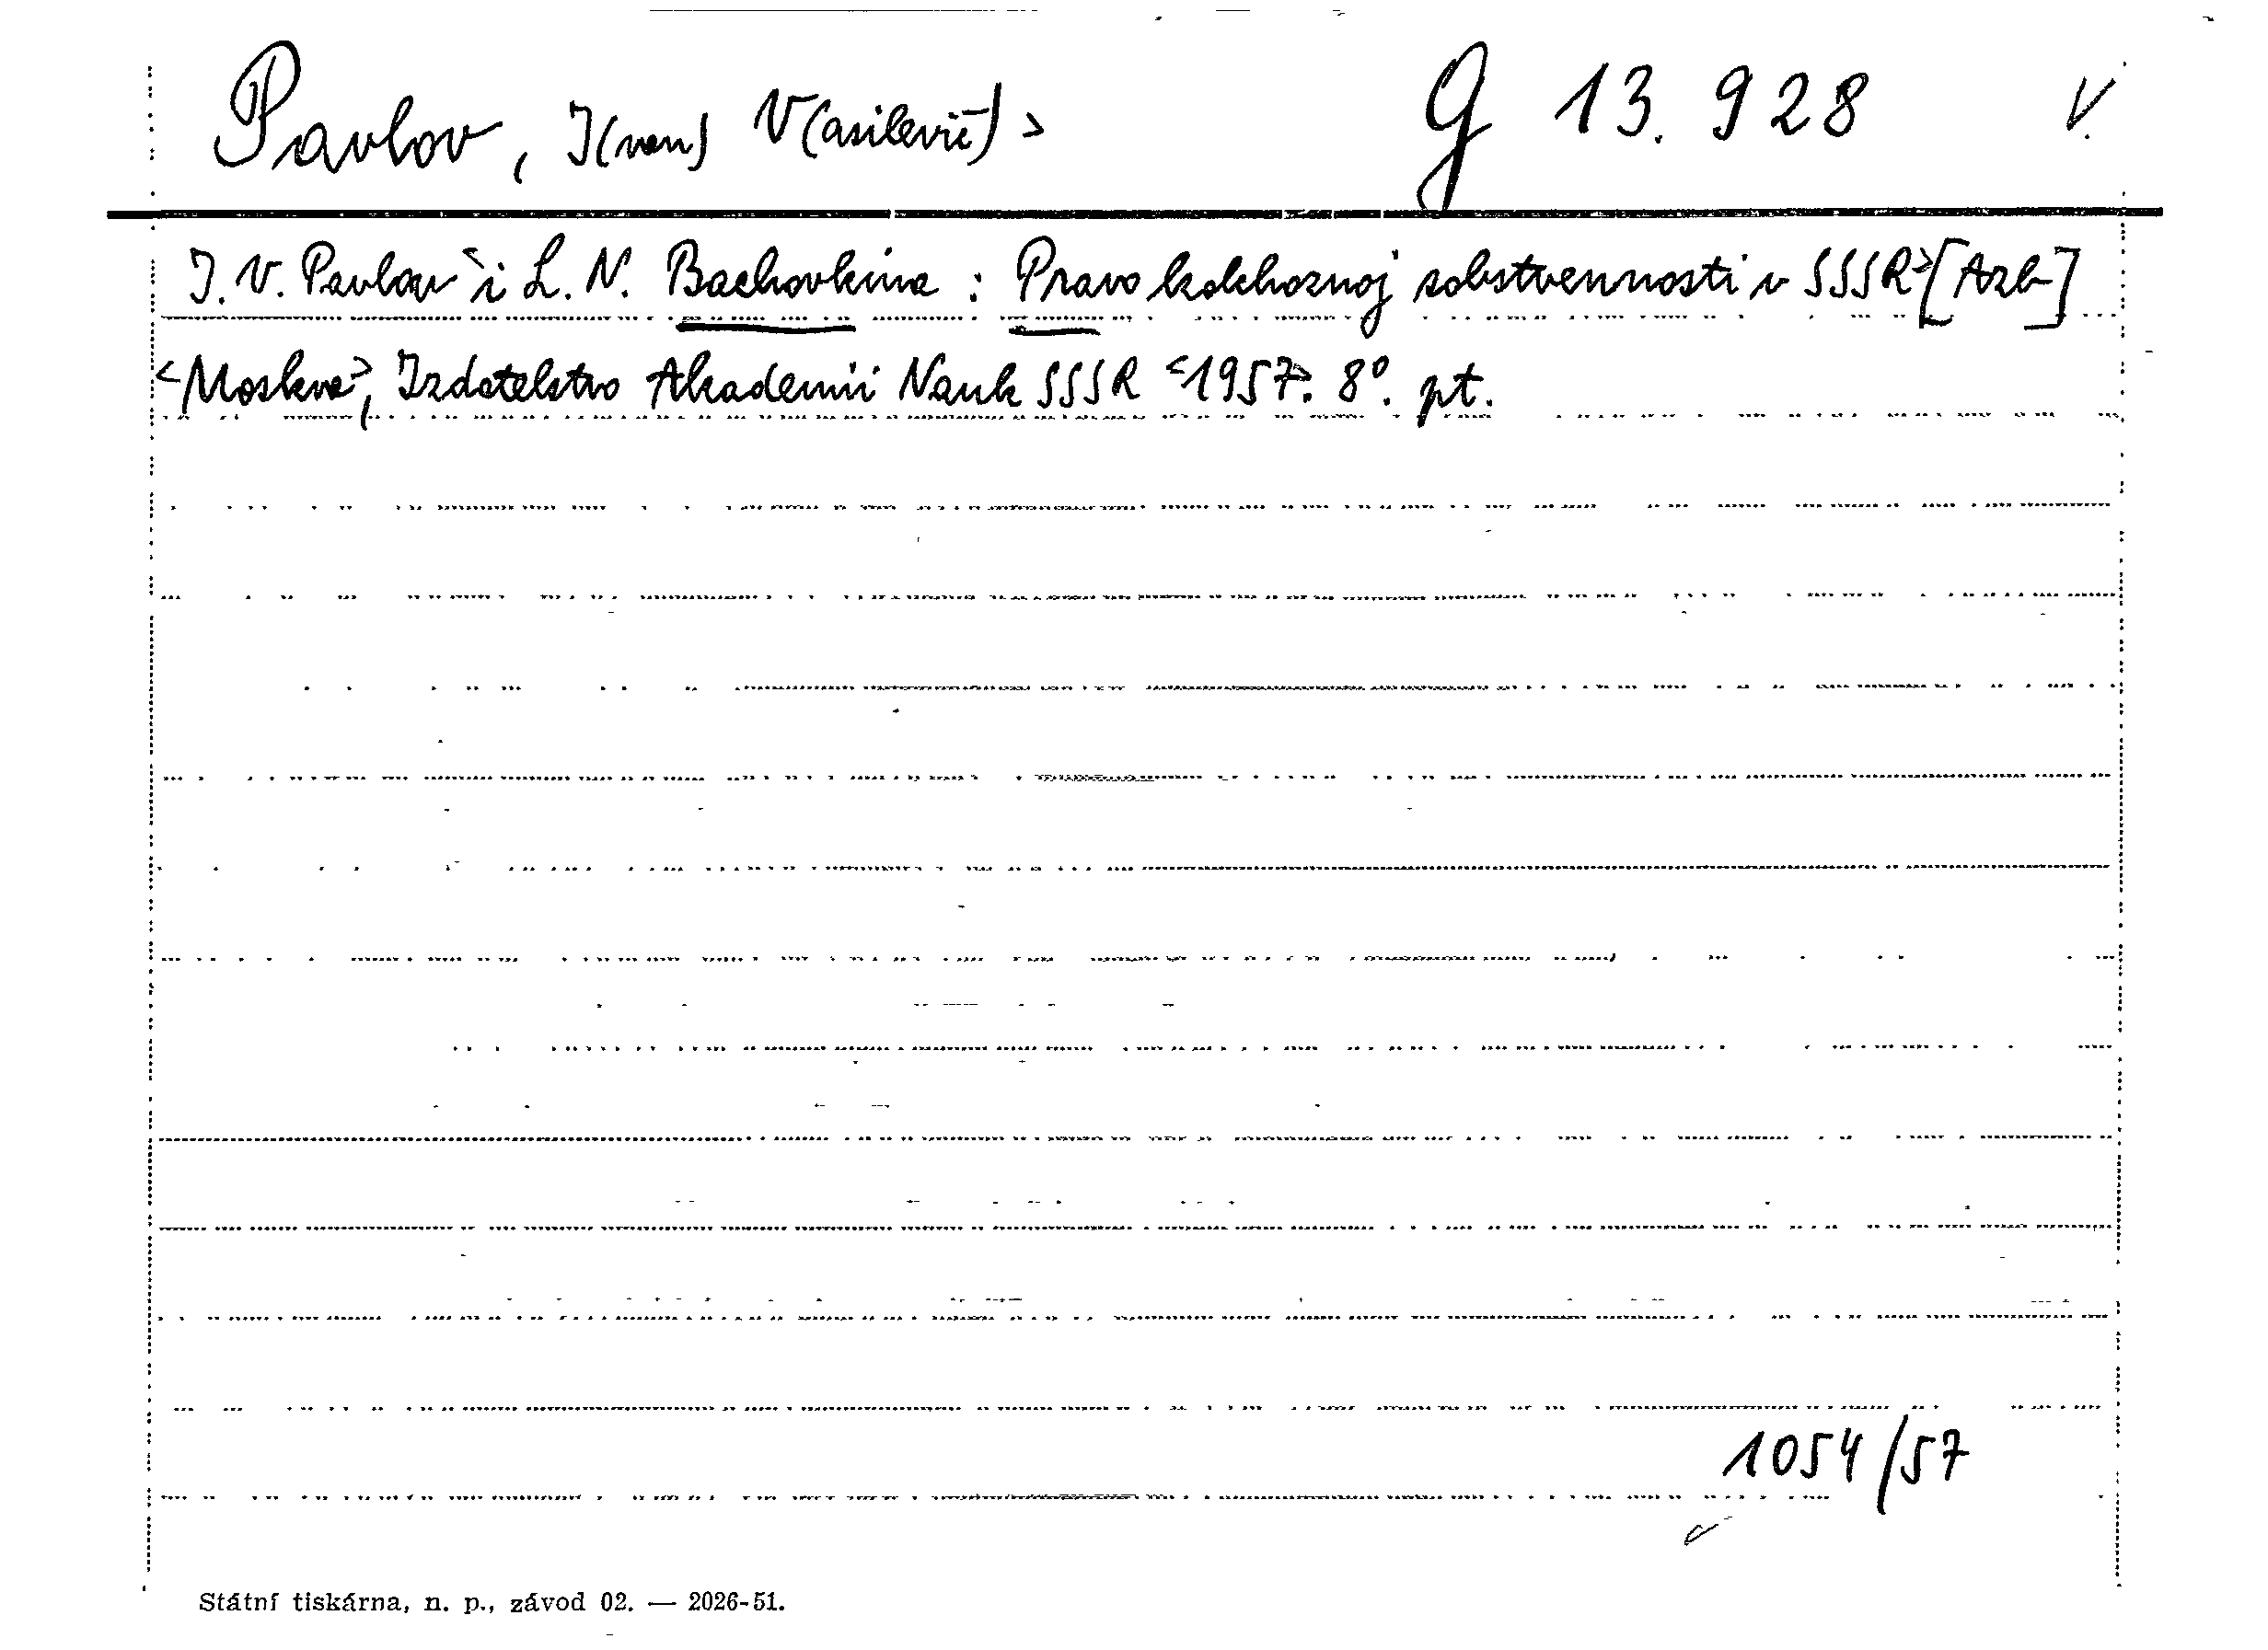 Pavlov, I(van) V(asilevič) > G 13.928 V.
I. V. Pavlov i L. N. Bachovkina : Pravo kolchoznoj sobstvennosti v SSSR > [Azb]
<Moskva>, Izdatelstvo Akademii Nauk SSSR <1957>. 8°. pt.
1054/57
Státní tiskárna, n. p., závod 02. — 2026-51.